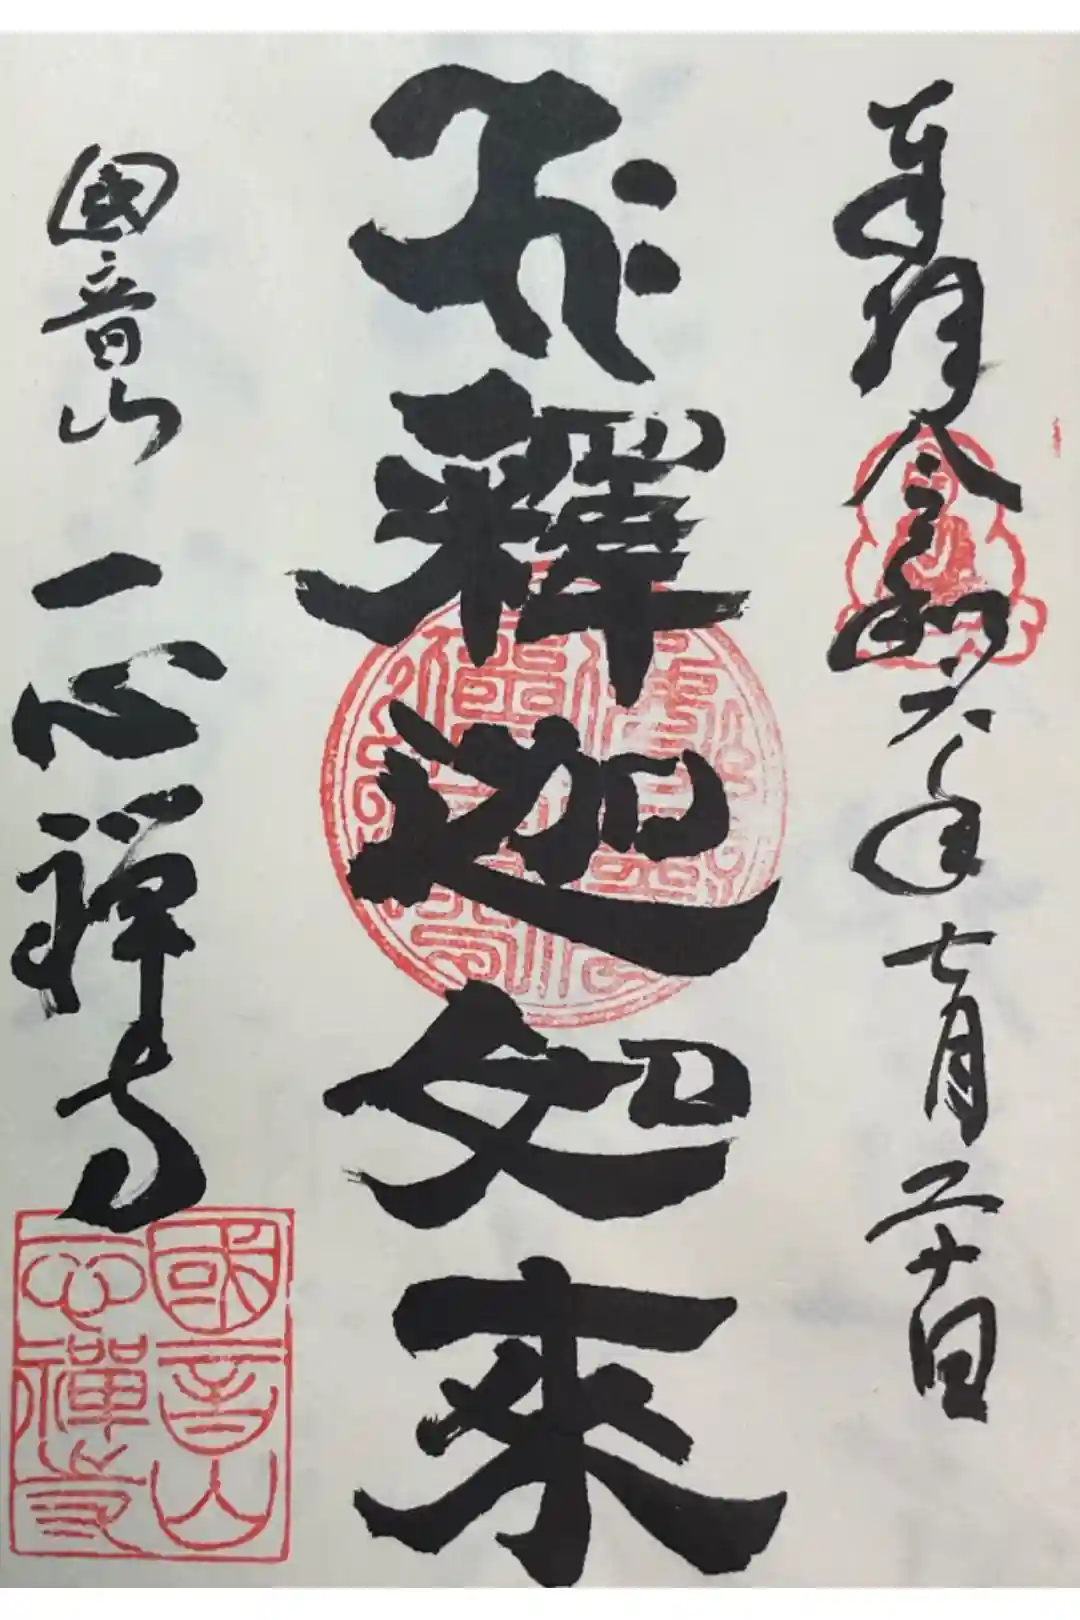 奉拝 令和六年七月二十日
釋迦如来
國音山 一心禅寺
國音山
心禪寺